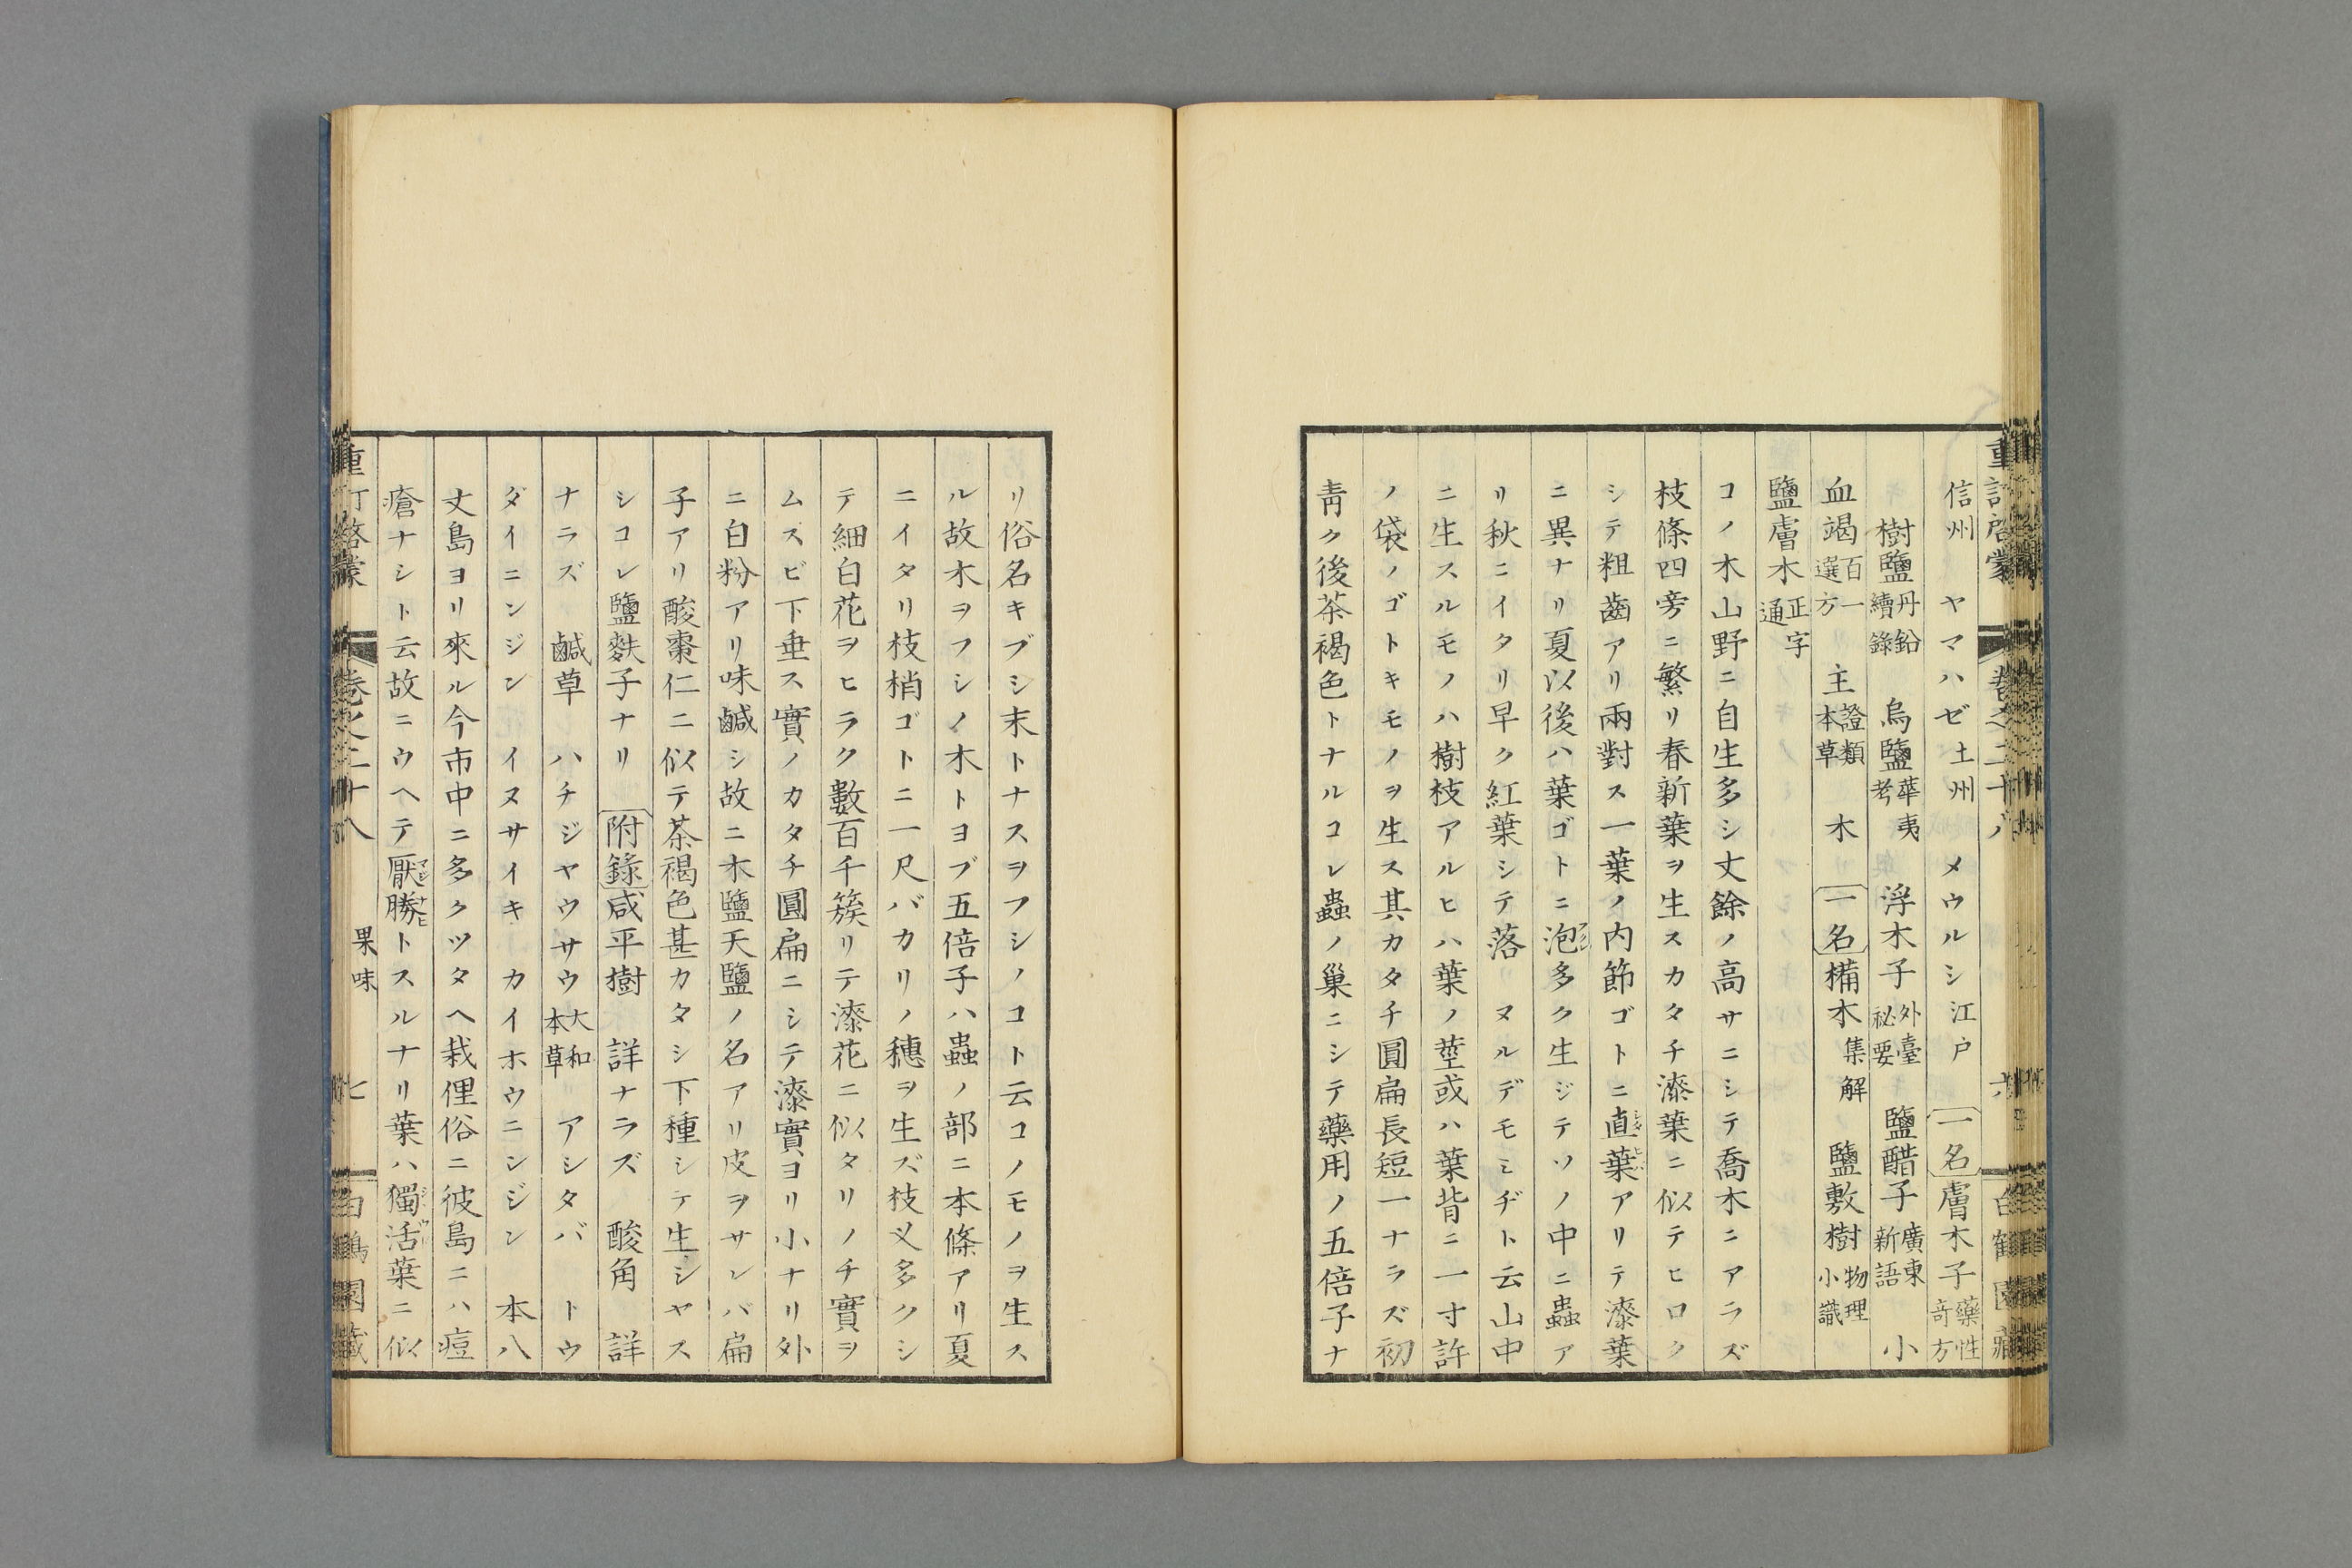 重訂啓蒙 卷之二十八 六 白鶴園藏
信州 ヤマハゼ土州 メウルシ江戸 一名膚木子藥性竒方
樹鹽丹鉛續錄 烏鹽華夷考 浮木子外臺祕要 鹽醋子廣東新語 小
血竭百一選方 主證類本草 木 一名構木集解 鹽敷樹物理小識
鹽膚木正字通
コノ木山野ニ自生多シ丈餘ノ高サニシテ喬木ニアラズ
枝條四旁ニ繁リ春新葉ヲ生スカタチ漆葉ニ似テヒロク
シテ粗齒アリ兩對ス一葉ノ内節ゴトニ直葉アリテ漆葉
ニ異ナリ夏以後ハ葉ゴトニ泡多ク生ジテソノ中ニ蟲ア
リ秋ニイタリ早ク紅葉シテ落 ヌルデモミヂト云山中
ニ生スルモノハ樹枝アルヒハ葉ノ莖或ハ葉背ニ一寸許
ノ袋ノゴトキモノヲ生ス其カタチ圓扁長短一ナラズ初
靑ク後茶褐色トナルコレ蟲ノ巢ニシテ藥用ノ五倍子ナ
リ俗名キブシ末トナスヲフシノコト云コノモノヲ生ス
ル故木ヲフシノ木トヨブ五倍子ハ蟲ノ部ニ本條アリ夏
ニイタリ枝梢ゴトニ一尺バカリノ穗ヲ生ズ枝乂多クシ
テ細白花ヲヒラク數百千簇リテ漆花ニ似タリノチ實ヲ
ムスビ下垂ス實ノカタチ圓扁ニシテ漆實ヨリ小ナリ外
ニ白粉アリ味鹹シ故ニ木鹽天鹽ノ名アリ皮ヲサレバ扁
子アリ酸棗仁ニ似テ茶褐色甚カタシ下種シテ生シヤス
シコレ鹽麩子ナリ 附錄咸平樹 詳ナラズ 酸角 詳
ナラズ 鹹草 ハチジヤウサウ大和本草 アシタバ トウ
ダイニンジン イヌサイキ カイホウニンジン 本八
丈島ヨリ來ル今市中ニ多クツタヘ栽俚俗ニ彼島ニハ痘
瘡ナシト云故ニウヘテ厭勝トスルナリ葉ハ獨活葉ニ似
重訂啓蒙 卷之二十八 果味 七 白鶴園藏